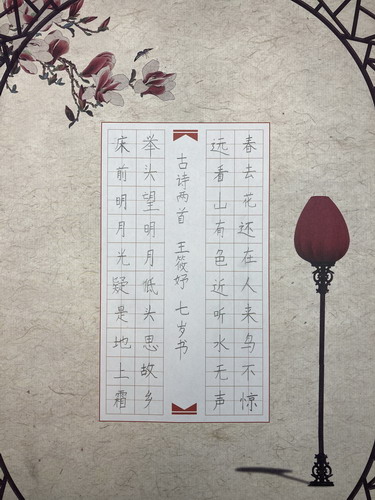 床前明月光疑是地上霜
举头望明月低头思故乡
古诗两首 王筱妤 七岁书
远看山有色近听水无声
春去花还在人来鸟不惊